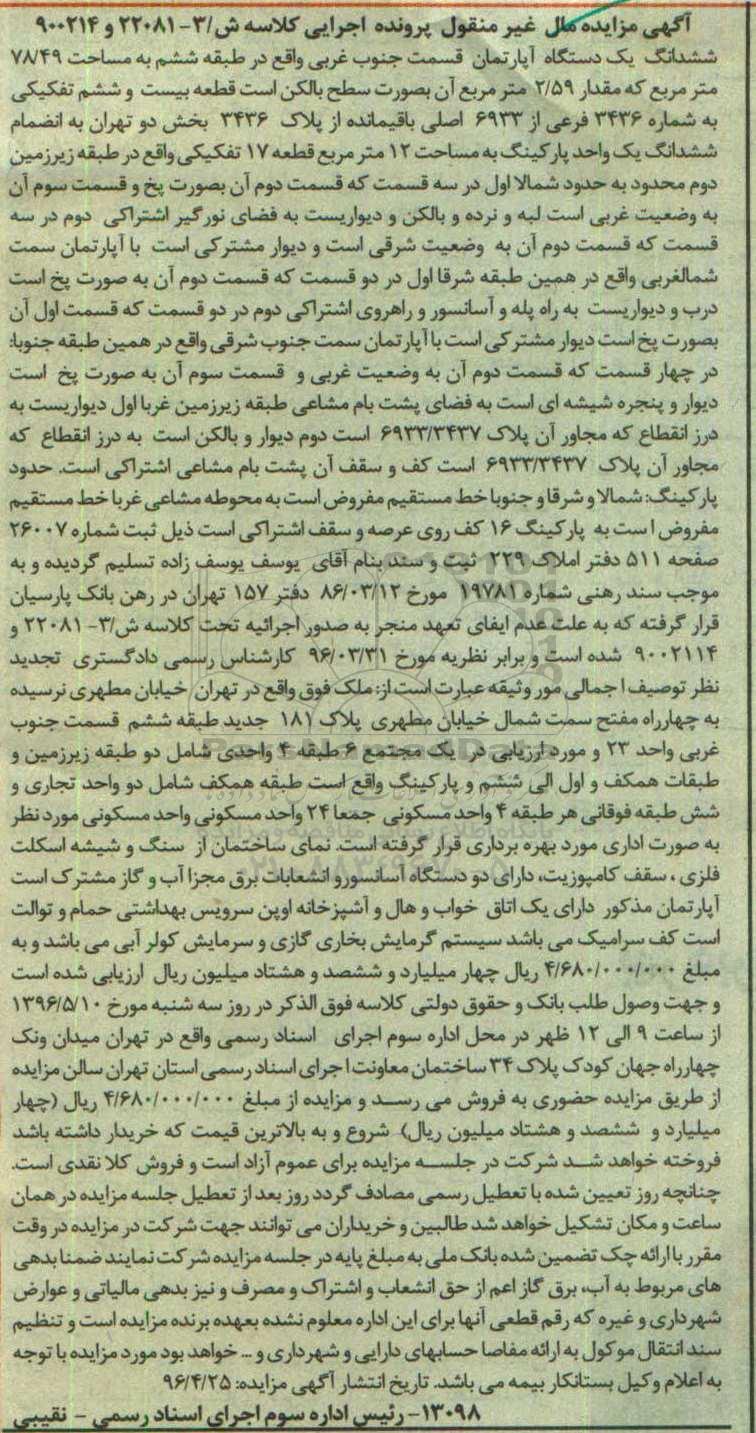 آگهی مزایده مال غیر منقول پرونده اجرایی کلاسه ش/۳-۲۲۰۸۱ و ۹۰۰۲۱۴
ششدانگ یک دستگاه آپارتمان قسمت جنوب غربی واقع در طبقه ششم به مساحت ۷۸/۴۹
متر مربع که مقدار ۲/۵۹ متر مربع آن بصورت سطح بالکن است قطعه بیست و ششم تفکیکی
به شماره ۳۴۳۶ فرعی از ۶۹۳۳ اصلی باقیمانده از پلاک ۳۴۳۶ بخش دو تهران به انضمام
ششدانگ یک واحد پارکینگ به مساحت ۱۲ متر مربع قطعه ۱۷ تفکیکی واقع در طبقه زیرزمین
دوم محدود به حدود شمالا اول در سه قسمت که قسمت دوم آن بصورت پخ و قسمت سوم آن
به وضعیت غربی است لبه و نرده و بالکن و دیواریست به فضای نورگیر اشتراکی دوم در سه
قسمت که قسمت دوم آن به وضعیت شرقی است و دیوار مشترکی است با آپارتمان سمت
شمالغربی واقع در همین طبقه شرقا اول در دو قسمت که قسمت دوم آن به صورت پخ است
درب و دیواریست به راه پله و آسانسور و راهروی اشتراکی دوم در دو قسمت که قسمت اول آن
بصورت پخ است دیوار مشترکی است با آپارتمان سمت جنوب شرقی واقع در همین طبقه جنوبا:
در چهار قسمت که قسمت دوم آن به وضعیت غربی و قسمت سوم آن به صورت پخ است
دیوار و پنجره شیشه ای است به فضای پشت بام مشاعی طبقه زیرزمین غربا اول دیواریست به
درز انقطاع که مجاور آن پلاک ۶۹۳۳/۳۴۳۷ است دوم دیوار و بالکن است به درز انقطاع که
مجاور آن پلاک ۶۹۳۳/۳۴۳۷ است کف و سقف آن پشت بام مشاعی اشتراکی است. حدود
پارکینگ: شمالا و شرقا و جنوبا خط مستقیم مفروض است به محوطه مشاعی غربا خط مستقیم
مفروض است به پارکینگ ۱۶ کف روی عرصه و سقف اشتراکی است ذیل ثبت شماره ۲۶۰۰۷
صفحه ۵۱۱ دفتر املاک ۲۲۹ ثبت و سند بنام آقای یوسف یوسف زاده تسلیم گردیده و به
موجب سند رهنی شماره ۱۹۷۸۱ مورخ ۸۶/۰۳/۱۲ دفتر ۱۵۷ تهران در رهن بانک پارسیان
قرار گرفته که به علت عدم ایفای تعهد منجر به صدور اجرائیه تحت کلاسه ش/۳-۲۲۰۸۱ و
۹۰۰۲۱۱۴ شده است و برابر نظریه مورخ ۹۶/۰۳/۳۱ کارشناس رسمی دادگستری تجدید
نظر توصیف اجمالی مور وثیقه عبارت است از: ملک فوق واقع در تهران خیابان مطهری نرسیده
به چهارراه مفتح سمت شمال خیابان مطهری پلاک ۱۸۱ جدید طبقه ششم قسمت جنوب
غربی واحد ۲۳ و مورد ارزیابی در یک مجتمع ۶ طبقه ۴ واحدی شامل دو طبقه زیرزمین و
طبقات همکف و اول الی ششم و پارکینگ واقع است طبقه همکف شامل دو واحد تجاری و
شش طبقه فوقانی هر طبقه ۴ واحد مسکونی جمعا ۲۴ واحد مسکونی واحد مسکونی مورد نظر
به صورت اداری مورد بهره برداری قرار گرفته است. نمای ساختمان از سنگ و شیشه اسکلت
فلزی ، سقف کامپوزیت، دارای دو دستگاه آسانسورو انشعابات برق مجزا آب و گاز مشترک است
آپارتمان مذکور دارای یک اتاق خواب و هال و آشپزخانه اوپن سرویس بهداشتی حمام و توالت
است کف سرامیک می باشد سیستم گرمایش بخاری گازی و سرمایش کولر آبی می باشد و به
مبلغ ۴/۶۸۰/۰۰۰/۰۰۰ ریال چهار میلیارد و ششصد و هشتاد میلیون ریال ارزیابی شده است
و جهت وصول طلب بانک و حقوق دولتی کلاسه فوق الذکر در روز سه شنبه مورخ ۱۳۹۶/۵/۱۰
از ساعت ۹ الی ۱۲ ظهر در محل اداره سوم اجرای اسناد رسمی واقع در تهران میدان ونک
چهارراه جهان کودک پلاک ۳۴ ساختمان معاونت اجرای اسناد رسمی استان تهران سالن مزایده
از طریق مزایده حضوری به فروش می رسد و مزایده از مبلغ ۴/۶۸۰/۰۰۰/۰۰۰ ریال (چهار
میلیارد و ششصد و هشتاد میلیون ریال) شروع و به بالاترین قیمت که خریدار داشته باشد
فروخته خواهد شد شرکت در جلسه مزایده برای عموم آزاد است و فروش کلا نقدی است.
چنانچه روز تعیین شده با تعطیل رسمی مصادف گردد روز بعد از تعطیل جلسه مزایده در همان
ساعت و مکان تشکیل خواهد شد طالبین و خریداران می توانند جهت شرکت در مزایده در وقت
مقرر با ارائه چک تضمین شده بانک ملی به مبلغ پایه در جلسه مزایده شرکت نمایند ضمنا بدهی
های مربوط به آب، برق گاز اعم از حق انشعاب و اشتراک و مصرف و نیز بدهی مالیاتی و عوارض
شهرداری و غیره که رقم قطعی آنها برای این اداره معلوم نشده بعهده برنده مزایده است و تنظیم
سند انتقال موکول به ارائه مفاصا حسابهای دارایی و شهرداری و ... خواهد بود مورد مزایده با توجه
به اعلام وکیل بستانکار بیمه می باشد. تاریخ انتشار آگهی مزایده: ۹۶/۴/۲۵
۱۳۰۹۸- رئیس اداره سوم اجرای اسناد رسمی - نقیبی